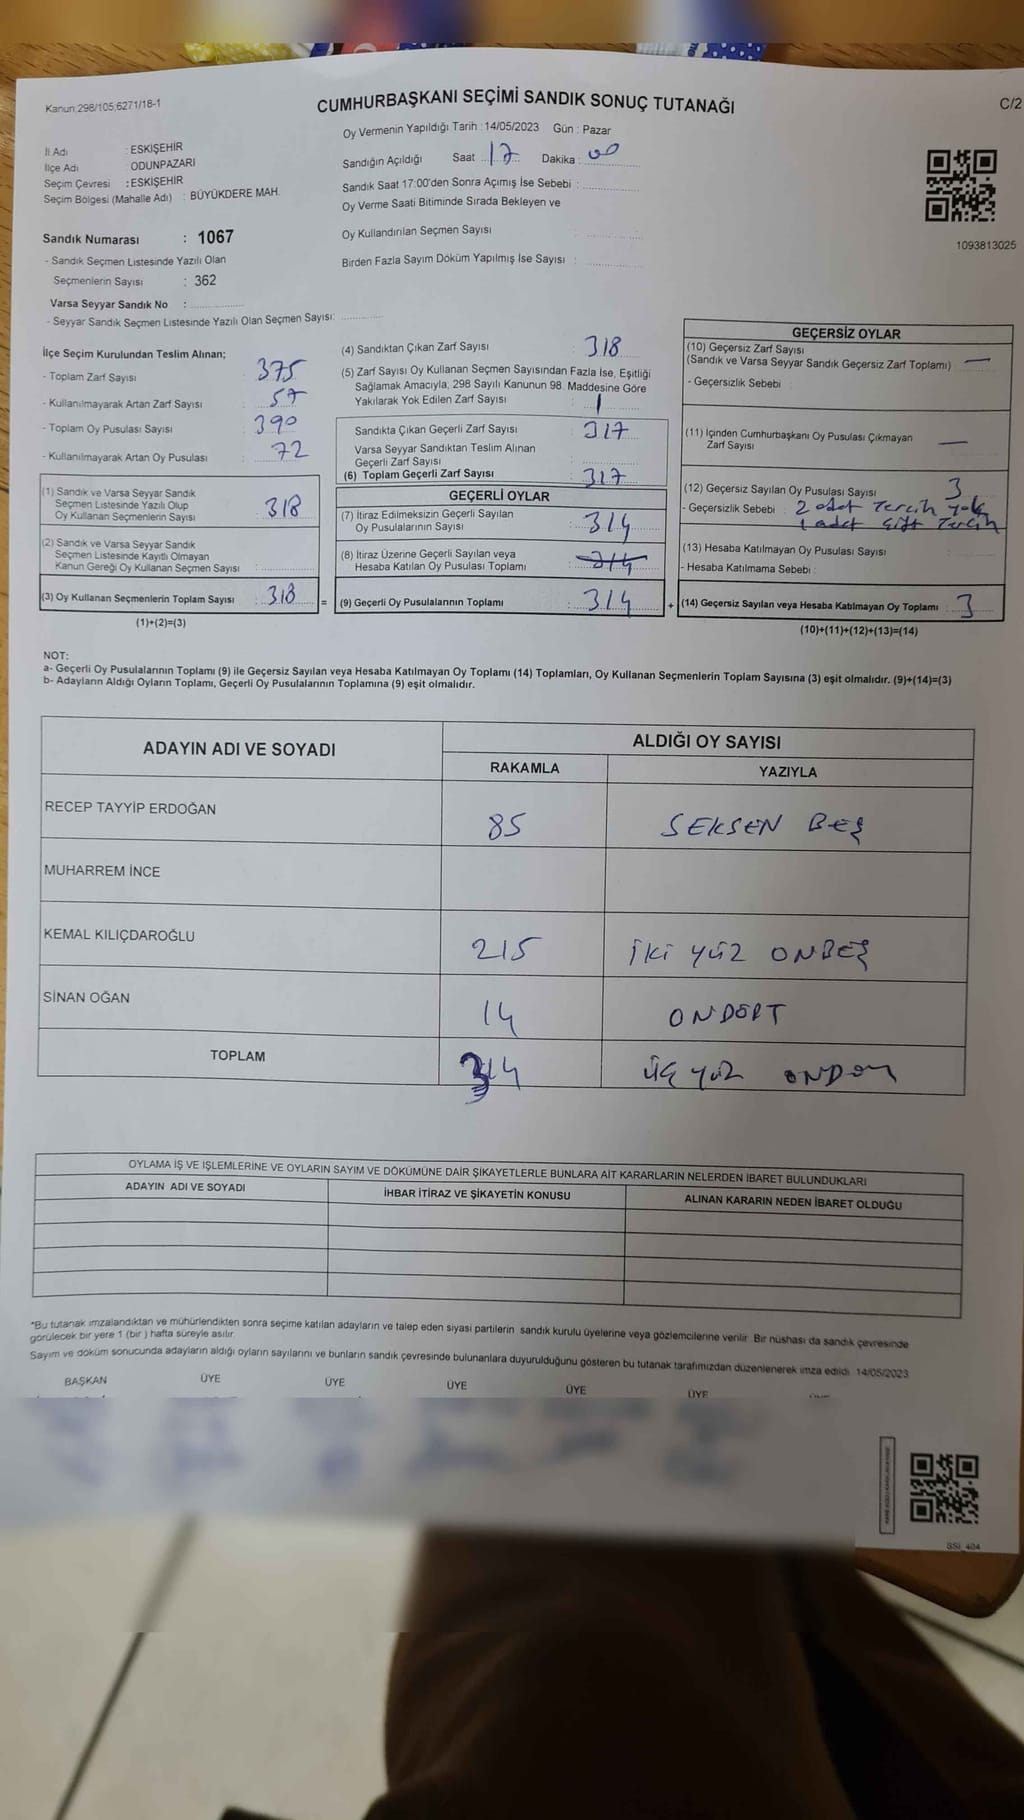 Kanun:298/105;6271/18-1
CUMHURBAŞKANI SEÇİMİ SANDIK SONUÇ TUTANAĞI
C/2
Oy Vermenin Yapıldığı Tarih :14/05/2023 Gün : Pazar
İl Adı : ESKİŞEHİR
İlçe Adı ODUNPAZARI
Seçim Çevresi : ESKİŞEHİR
Seçim Bölgesi (Mahalle Adı) : BÜYÜKDERE MAH.
Sandık Numarası : 1067
- Sandık Seçmen Listesinde Yazılı Olan
Seçmenlerin Sayısı : 362
Varsa Seyyar Sandık No :
- Seyyar Sandık Seçmen Listesinde Yazılı Olan Seçmen Sayısı:
Sandığın Açıldığı Saat 17 Dakika : 00
Sandık Saat 17:00'den Sonra Açımış İse Sebebi :
Oy Verme Saati Bitiminde Sırada Bekleyen ve
Oy Kullandırılan Seçmen Sayısı
Birden Fazla Sayım Döküm Yapılmış İse Sayısı :
1093813025
İlçe Seçim Kurulundan Teslim Alınan;
- Toplam Zarf Sayısı : 375
- Kullanılmayarak Artan Zarf Sayısı : 57
- Toplam Oy Pusulası Sayısı : 390
- Kullanılmayarak Artan Oy Pusulası : 72
(1) Sandık ve Varsa Seyyar Sandık
Seçmen Listesinde Yazılı Olup
Oy Kullanan Seçmenlerin Sayısı : 318
(2) Sandık ve Varsa Seyyar Sandık
Seçmen Listesinde Kayıtlı Olmayan
Kanun Gereği Oy Kullanan Seçmen Sayısı :
(3) Oy Kullanan Seçmenlerin Toplam Sayısı : 318 =
(1)+(2)=(3)
(4) Sandıktan Çıkan Zarf Sayısı : 318
(5) Zarf Sayısı Oy Kullanan Seçmen Sayısından Fazla İse, Eşitliği
Sağlamak Amacıyla, 298 Sayılı Kanunun 98. Maddesine Göre
Yakılarak Yok Edilen Zarf Sayısı : 1
Sandıkta Çıkan Geçerli Zarf Sayısı : 317
Varsa Seyyar Sandıktan Teslim Alınan
Geçerli Zarf Sayısı
(6) Toplam Geçerli Zarf Sayısı : 317
GEÇERLİ OYLAR
(7) İtiraz Edilmeksizin Geçerli Sayılan
Oy Pusulalarının Sayısı : 314
(8) İtiraz Üzerine Geçerli Sayılan veya
Hesaba Katılan Oy Pusulası Toplamı : 314
(9) Geçerli Oy Pusulalarının Toplamı : 314 +
GEÇERSİZ OYLAR
(10) Geçersiz Zarf Sayısı
(Sandık ve Varsa Seyyar Sandık Geçersiz Zarf Toplamı) : —
- Geçersizlik Sebebi :
(11) İçinden Cumhurbaşkanı Oy Pusulası Çıkmayan
Zarf Sayısı —
(12) Geçersiz Sayılan Oy Pusulası Sayısı : 3
- Geçersizlik Sebebi : 2 adet Tercih yok
1 adet Çift Tercih
(13) Hesaba Katılmayan Oy Pusulası Sayısı :
- Hesaba Katılmama Sebebi :
(14) Geçersiz Sayılan veya Hesaba Katılmayan Oy Toplamı : 3
(10)+(11)+(12)+(13)=(14)
NOT:
a- Geçerli Oy Pusulalarının Toplamı (9) ile Geçersiz Sayılan veya Hesaba Katılmayan Oy Toplamı (14) Toplamları, Oy Kullanan Seçmenlerin Toplam Sayısına (3) eşit olmalıdır. (9)+(14)=(3)
b- Adayların Aldığı Oyların Toplamı, Geçerli Oy Pusulalarının Toplamına (9) eşit olmalıdır.
ADAYIN ADI VE SOYADI ALDIĞI OY SAYISI
RAKAMLA YAZIYLA
RECEP TAYYİP ERDOĞAN 85 SEKSEN BEŞ
MUHARREM İNCE
KEMAL KILIÇDAROĞLU 215 İKİ YÜZ ONBEŞ
SİNAN OĞAN 14 ONDÖRT
TOPLAM 314 ÜÇ YÜZ
OYLAMA İŞ VE İŞLEMLERİNE VE OYLARIN SAYIM VE DÖKÜMÜNE DAİR ŞİKAYETLERLE BUNLARA AİT KARARLARIN NELERDEN İBARET BULUNDUKLARI
ADAYIN ADI VE SOYADI İHBAR İTİRAZ VE ŞİKAYETİN KONUSU ALINAN KARARIN NEDEN İBARET OLDUĞU
*Bu tutanak imzalandıktan ve mühürlendikten sonra seçime katılan adayların ve talep eden siyasi partilerin sandık kurulu üyelerine veya gözlemcilerine verilir. Bir nüshası da sandık çevresinde
görülecek bir yere 1 (bir ) hafta süreyle asılır.
Sayım ve döküm sonucunda adayların aldığı oyların sayılarını ve bunların sandık çevresinde bulunanlara duyurulduğunu gösteren bu tutanak tarafımızdan düzenlenerek imza edildi. 14/05/2023
BAŞKAN ÜYE ÜYE ÜYE ÜYE ÜYE
SSİ_404